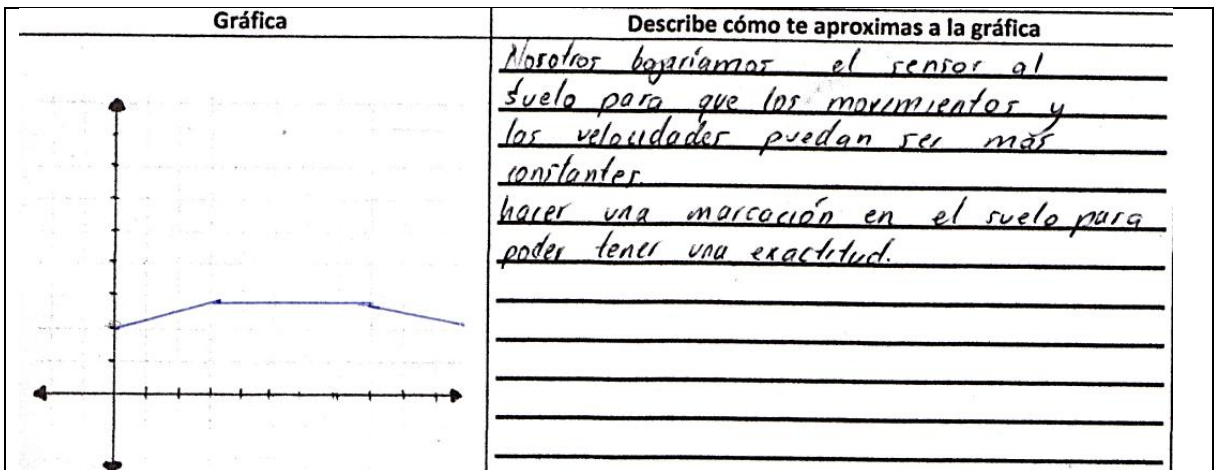 Gráfica
Describe cómo te aproximas a la gráfica
Nosotros bajaríamos el sensor al
suelo para que los movimientos y
las velocidades puedan ser más
constantes.
hacer una marcación en el suelo para
poder tener una exactitud.